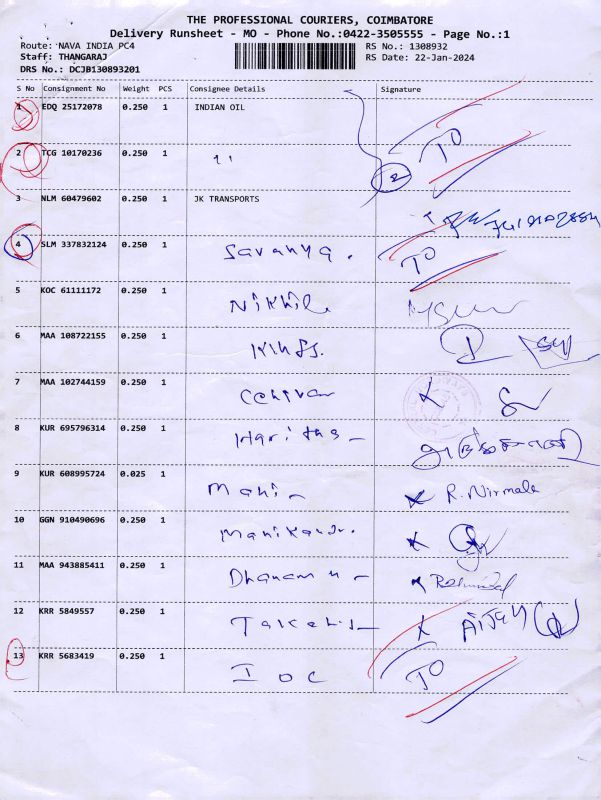 THE PROFESSIONAL COURIERS, COIMBATORE
Delivery Runsheet - MO - Phone No.:0422-3505555 - Page No.:1
Route: NAVA INDIA PC4 RS No.: 1308932
Staff: THANGARAJ RS Date: 22-Jan-2024
DRS No.: DCJB130893201
S No Consignment No Weight PCS Consignee Details Signature
1 EDQ 25172078 0.250 1 INDIAN OIL
2 TCG 10170236 0.250 1 " TO
3 NLM 60479602 0.250 1 JK TRANSPORTS
4 SLM 337832124 0.250 1 Saranya. TO
5 KOC 61111172 0.250 1 Nikhil
6 MAA 108722155 0.250 1
7 MAA 102744159 0.250 1
8 KUR 695796314 0.250 1 Haritha
9 KUR 608995724 0.025 1 Mani R. Nirmala
10 GGN 910490696 0.250 1
11 MAA 943885411 0.250 1
12 KRR 5849557 0.250 1
13 KRR 5683419 0.250 1 IOC TO